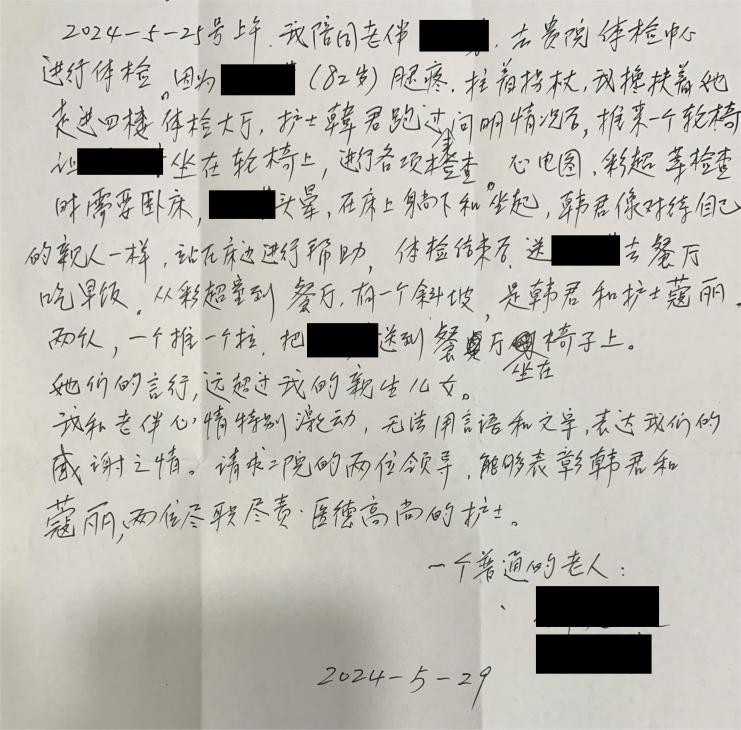 2024-5-25号上午，我陪同老伴，去贵院体检中心
进行体检。因为（82岁）腿疼，拄着拐杖，我搀扶着她
走进四楼体检大厅，护士韩君跑过来问明情况后，推来一个轮椅
让坐在轮椅上，进行各项检查。心电图，彩超等检查
时需要卧床，头晕，在床上躺下和坐起，韩君像对待自己
的亲人一样，站在床边进行帮助，体检结束后，送去餐厅
吃早饭。从彩超室到餐厅，有一个斜坡，是韩君和护士蔻丽，
两人，一个推一个拉，把送到餐厅坐在椅子上。
她们的言行，远超过我的亲生儿女。
我和老伴心情特别激动，无法用言语和文字，表达我们的
感谢之情。请求二院的两位领导，能够表彰韩君和
蔻丽，两位尽职尽责·医德高尚的护士。
一个普通的老人：
2024-5-29